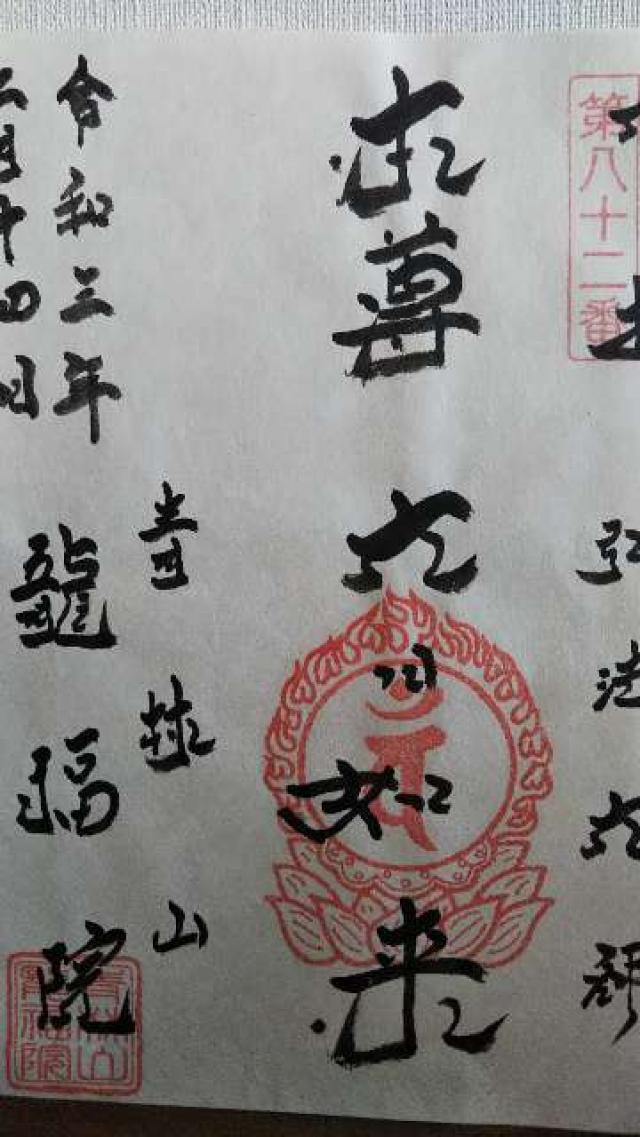 第八十二番
弘法大師
本尊
大日如来
青林山
龍福院
令和三年
月十四日
青林山
龍福院